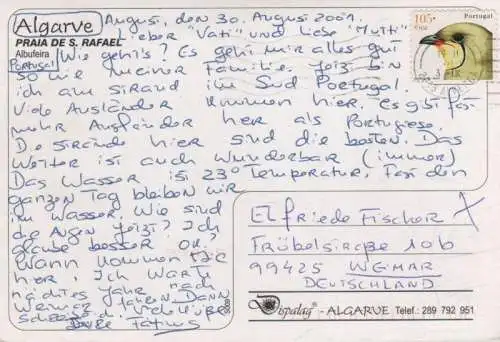 Algarve
PRAIA DE S. RAFAEL
Albufeira
Portugal
Augusi, den 30. Augusi 2001.
Lieber "Vati" und liebe "Mutti"
Wie gehi's? Es gehi mir alles gui
so wie meiner Familie. Jeizi bin
ich am sirand im Süd Portugal.
Viele Ausländer kommen hier. Es gibi fasi
mehr Ausländer hier als Portugiese.
Die sirände hier sind die besten. Das
Wetter isi auch wunderbar (immer)
Das Wasser isi 23° Temperatur. Fasi den
ganzen Tag bleiben wir
im Wasser. Wie sind
die Augen jeizi? Ich
glaube besser ok?
Wann kommen Sie
hier. Ich warte
nächsies jahr nach
Weimar fahren. Dann
105=
€ 0,52
Portugal
Elfriede Fischer
Fröbelsiraße 10b
99425 WEIMAR
DEUTSCHLAND
Dispalag® - ALGARVE Telef.: 289 792 951